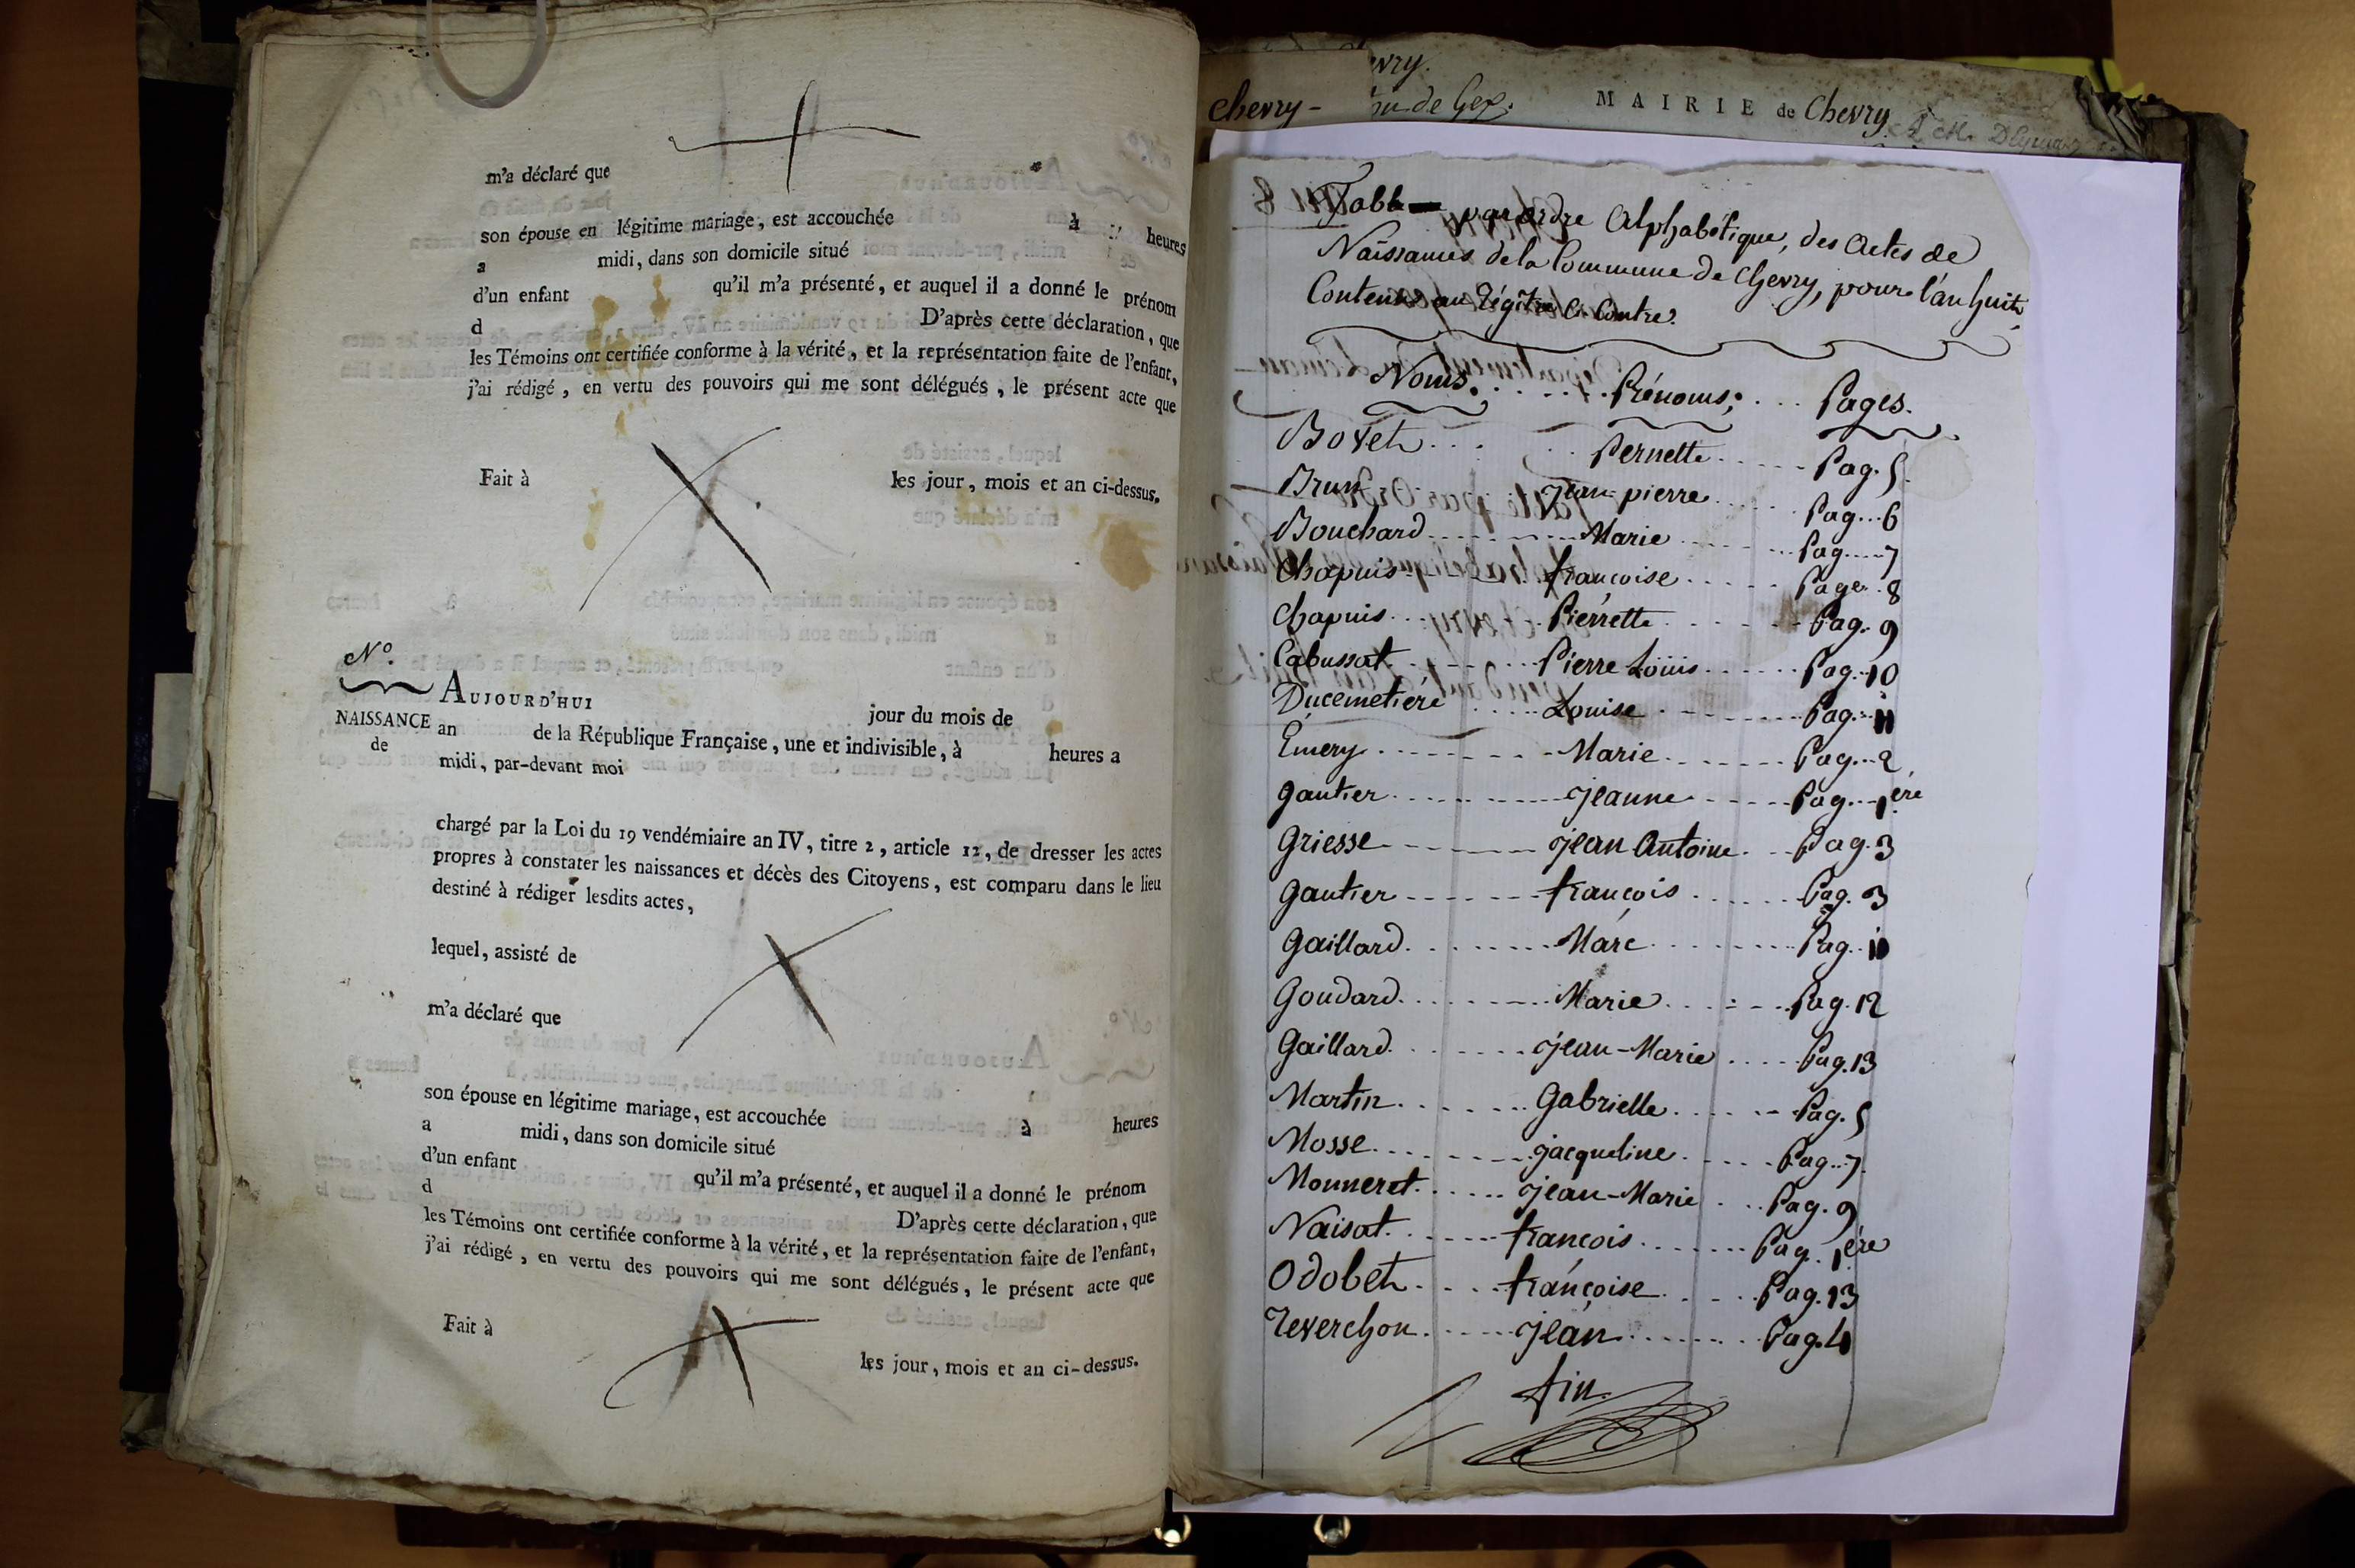 m'a déclaré que
son épouse en légitime mariage, est accouchée à heures
a midi, dans son domicile situé
d'un enfant qu'il m'a présenté, et auquel il a donné le prénom
d D'après cette déclaration, que
les Témoins ont certifiée conforme à la vérité, et la représentation faite de l'enfant,
j'ai rédigé, en vertu des pouvoirs qui me sont délégués, le présent acte que
Fait à les jour, mois et an ci-dessus.
N.º
NAISSANCE
de
AUJOURD'HUI jour du mois de
an de la République Française, une et indivisible, à heures a
midi, par-devant moi
chargé par la Loi du 19 vendémiaire an IV, titre 2, article 12, de dresser les actes
propres à constater les naissances et décès des Citoyens, est comparu dans le lieu
destiné à rédiger lesdits actes,
lequel, assisté de
m'a déclaré que
son épouse en légitime mariage, est accouchée à heures
a midi, dans son domicile situé
d'un enfant qu'il m'a présenté, et auquel il a donné le prénom
d D'après cette déclaration, que
les Témoins ont certifiée conforme à la vérité, et la représentation faite de l'enfant,
j'ai rédigé, en vertu des pouvoirs qui me sont délégués, le présent acte que
Fait à les jour, mois et an ci-dessus.
Chevry - de Gex.
MAIRIE de Chevry
Table par ordre Alphabétique, des Actes de
Naissances de la Commune de Chevry, pour l'an huit,
Contenus au Régitre Ci Contre.
Noms. Prénoms; Pages.
Bovet Pernette Pag. 5.
Brun Jean-pierre Pag. 6
Bouchard Marie Pag. 7
Chapuis françoise Page. 8
Chapuis Pierrette Pag. 9
Cabussat Pierre Loüis Pag. 10
Ducemetiére Louise Pag. 11
Emery Marie Pag. 2
Gautier Jeanne Pag. 1ere
Griesse Jean Antoine Pag. 3
Gautier françois Pag. 3
Gaillard Marc Pag. 11
Goudard Marie Pag. 12
Gaillard Jean-Marie Pag. 13
Martin Gabrielle Pag. 5
Mosse Jacqueline Pag. 7.
Monneret Jean-Marie Pag. 9
Naisat françois Pag. 1ere
Odobet françoise Pag. 13
Reverchon Jean Pag. 4
fin